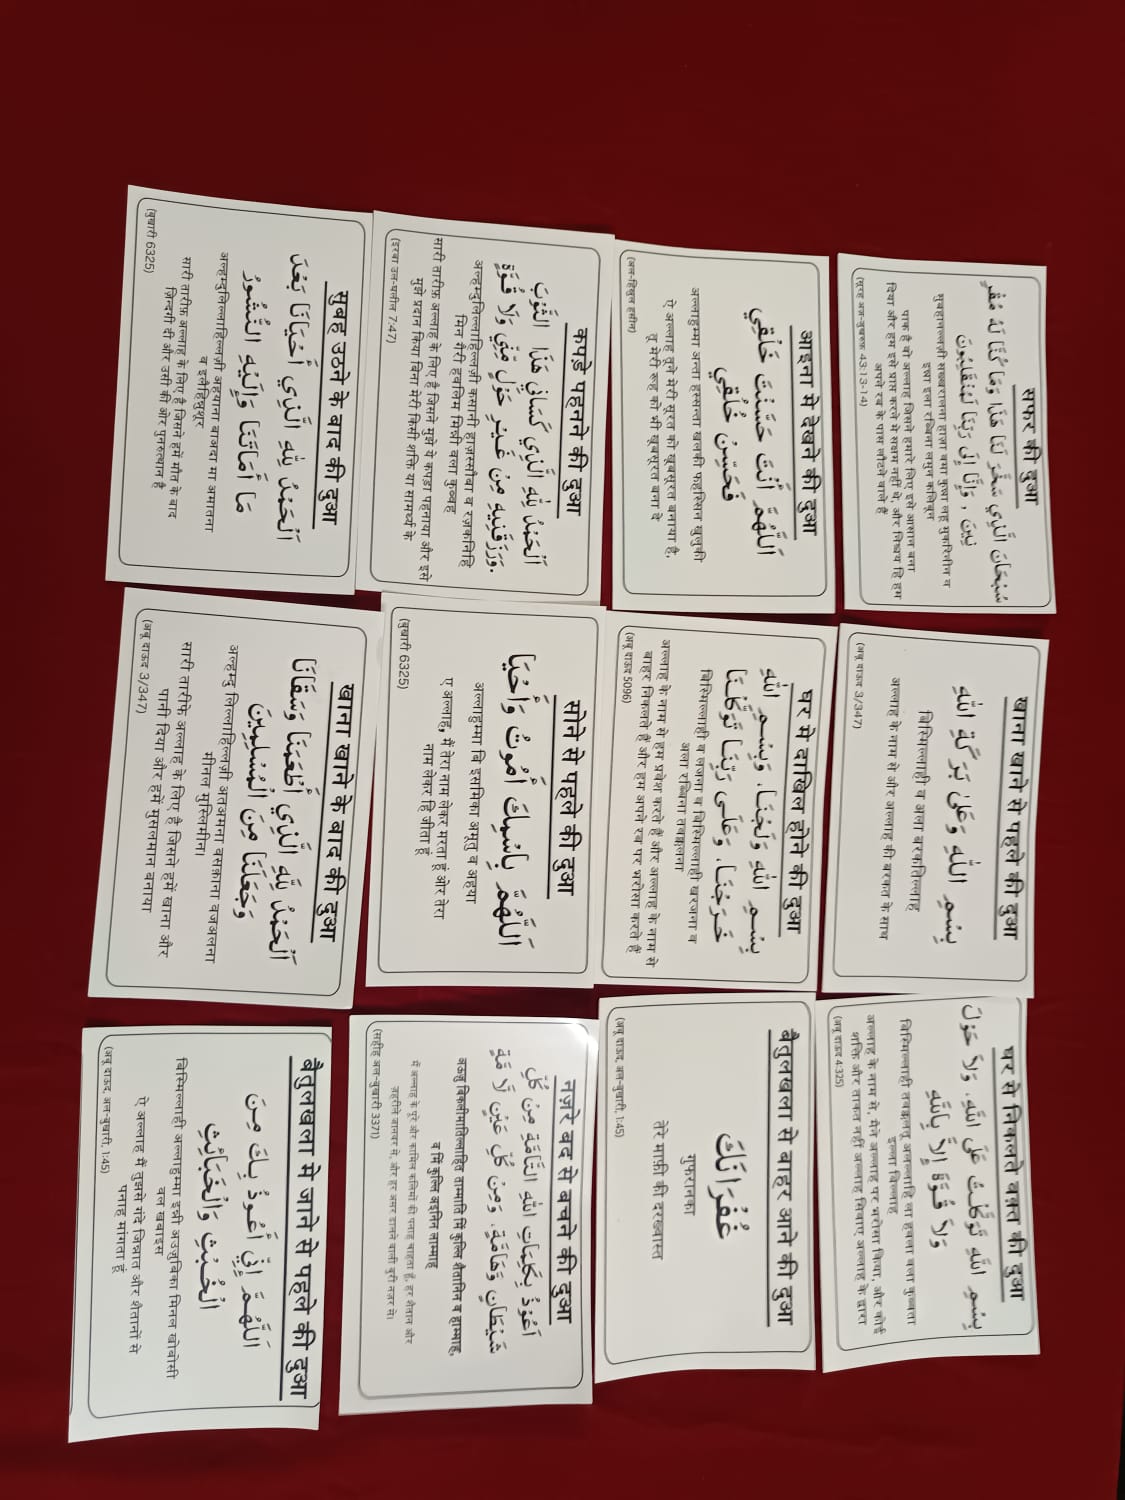 सफर की दुआ
سُبْحَانَ الَّذِي سَخَّرَ لَنَا هَذَا وَمَا كُنَّا لَهُ مُقْرِ
نِينَ ، وَإِنَّا إِلَى رَبِّنَا لَمُنْقَلِبُونَ
सुबहानल्लज़ी सख्खरालना हाज़ा वमा कुन्ना लहू मुकरिनीन व
इन्ना इला रब्बिना लमुन कलिबून
पाक है वो अल्लाह जिसने हमारे लिए इसे आसान बना
दिया और हम इसे प्राप्त करने में सक्षम नहीं थे, और निश्चय हि हम
अपने रब के पास लौटने वाले हैं
(सूरह अज़-ज़ुखरुफ़ 43:13-14)
खाना खाने से पहले की दुआ
بِسْمِ اللَّهِ وَعَلَى بَرَكَةِ اللَّهِ
बिस्मिल्लाही व अला बरकतिल्लाह
अल्लाह के नाम से और अल्लाह की बरकत के साथ
(अबू दाऊद 3/347)
घर से निकलते वक़्त की दुआ
بِسْمِ اللَّهِ تَوَكَّلْتُ عَلَى اللَّهِ، وَلَا حَوْلَ
وَلَا قُوَّةَ إِلَّا بِاللَّهِ
बिस्मिल्लाही तवक्कलतू अलल्लाहि ला हवला वला कुव्वता
इल्ला बिल्लाह
अल्लाह के नाम से, मैंने अल्लाह पर भरोसा किया, और कोई
शक्ति और ताकत नहीं अल्लाह सिवाए अल्लाह के द्वारा
(अबू दाऊद 4:325)
आइना से देखने की दुआ
اَللَّهُمَّ أَنْتَ حَسَّنْتَ خَلْقِي
فَحَسِّنْ خُلُقِي
अल्लाहुम्मा अन्ता हस्सन्ता खलकी फहस्सिन खुलुकी
ऐ अल्लाह तूने मेरी सूरत को खूबसूरत बनाया है,
तू मेरी रूह को भी खूबसूरत बना दे
(अल-हिस्नुल हसीन)
घर से दाखिल होने की दुआ
بِسْمِ اللَّهِ وَلَجْنَا، وَبِسْمِ اللَّهِ
خَرَجْنَا، وَعَلَى رَبِّنَا تَوَكَّلْنَا
बिस्मिल्लाही व लजना व बिस्मिल्लाही खरजना व
अला रब्बिना तवक्कलना
अल्लाह के नाम से हम प्रवेश करते हैं और अल्लाह के नाम से
बाहर निकलते हैं और हम अपने रब पर भरोसा करते हैं
(अबू दाऊद 5096)
बैतुलखला से बाहर आने की दुआ
غُفْرَانَكَ
गुफरानका
तेरे माफ़ी की दरख्वास्त
(अबू दाऊद, अल-बुखारी, 1:45)
कपड़े पहनने की दुआ
اَلْحَمْدُ لِلَّهِ الَّذِي كَسَانِي هَذَا الثَّوْبَ
وَرَزَقَنِيهِ مِنْ غَيْرِ حَوْلٍ مِّنِّي وَلَا قُوَّةٍ.
अल्हम्दुलिल्लाहिल्लज़ी कसानी हाज़स्सौबा व रज़कनिहि
मिन गैरी हवलिम मिन्नी वला कुव्वह
सारी तारीफ़ अल्लाह के लिए है जिसने मुझे ये कपड़ा पहनाया और इसे
मुझे प्रदान किया बिना मेरी किसी शक्ति या सामर्थ्य के
(इरवा उल-ग़लील 7:47)
सोने से पहले की दुआ
اَللَّهُمَّ بِاسْمِكَ أَمُوتُ وَأَحْيَا
अल्लाहुम्मा बि इसमिका अमूतु व अहया
ए अल्लाह, मैं तेरा नाम लेकर मरता हूं और तेरा
नाम लेकर हि जीता हूं
(बुखारी 6325)
नज़रे बद से बचने की दुआ
أَعُوْذُ بِكَلِمَاتِ اللَّهِ التَّامَّةِ مِنْ كُلِّ
شَيْطَانٍ وَهَامَّةٍ، وَمِنْ كُلِّ عَيْنٍ لَا مَّةٍ
अऊज़ु बिकलीमातिल्लाहित ताम्माति मिं कुल्लि शैतानिन व हाम्माह,
व मिं कुल्लि अइनिन लाम्माह
में अल्लाह के पूरे और कामिल कलिमों की पनाह चाहता हूं, हर शैतान और
ज़हरीले जानवर से, और हर असर डालने वाली बुरी नज़र से।
(सहीह अल-बुखारी 3371)
सुबह उठने के बाद की दुआ
اَلْحَمْدُ لِلَّهِ الَّذِي أَحْيَانَا بَعْدَ
مَا أَمَاتَنَا وَإِلَيْهِ النُّشُورُ
अल्हम्दुलिल्लाहिल्लज़ी अहयाना बाअदा मा अमातना
व इलैहिन्नुशूर
सारी तारीफ़ अल्लाह के लिए है जिसने हमें मौत के बाद
ज़िन्दगी दी और उसी की ओर पुनरुत्थान है
(बुखारी 6325)
खाना खाने के बाद की दुआ
اَلْحَمْدُ لِلَّهِ الَّذِي أَطْعَمَنَا وَسَقَانَا
وَجَعَلَنَا مِنَ الْمُسْلِمِينَ
अल्हम्दु लिल्लाहिल्लज़ी अतअमना वसक़ाना वजअलना
मीनल मुस्लिमीन।
सारी तारीफें अल्लाह के लिए है जिसने हमें खाना और
पानी दिया और हमें मुसलमान बनाया
(अबू दाऊद 3/347)
बैतुलखला से जाने से पहले की दुआ
اَللَّهُمَّ إِنِّي أَعُوذُ بِكَ مِنَ
الْخُبُثِ وَالْخَبَائِثِ
बिस्मिल्लाही अल्लाहुम्मा इन्नी अउज़ुबिका मिनल खोबोसी
वल खबाइस
ऐ अल्लाह मैं तुझसे गंदे जिन्नात और शैतानों से
पनाह मांगता हूं
(अबू दाऊद, अल-बुखारी, 1:45)